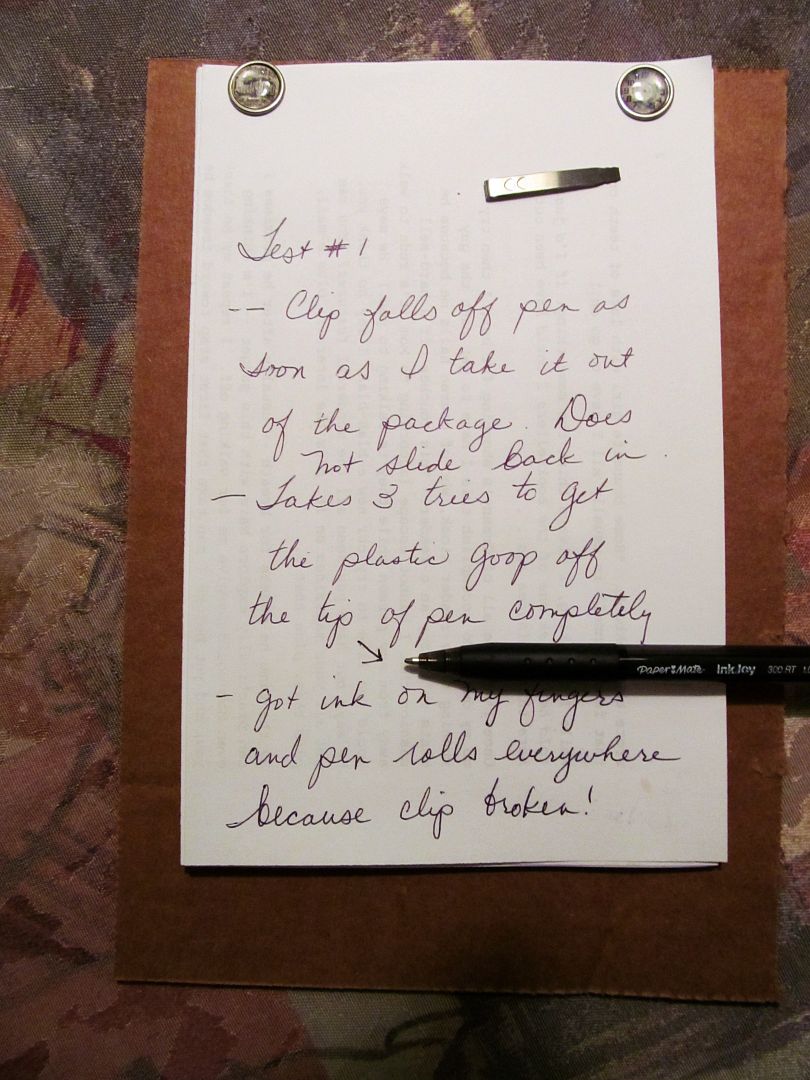 Test # 1
-- Clip falls off pen as
soon as I take it out
of the package. Does
not slide back in.
- Takes 3 tries to get
the plastic goop off
the tip of pen completely
PAPER MATE InkJoy 300 RT
- got ink on my fingers
and pen rolls everywhere
because clip broken!